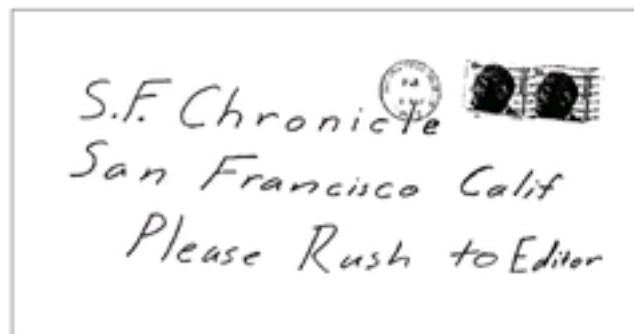 S.F. Chronicle
San Francisco Calif
Please Rush to Editor